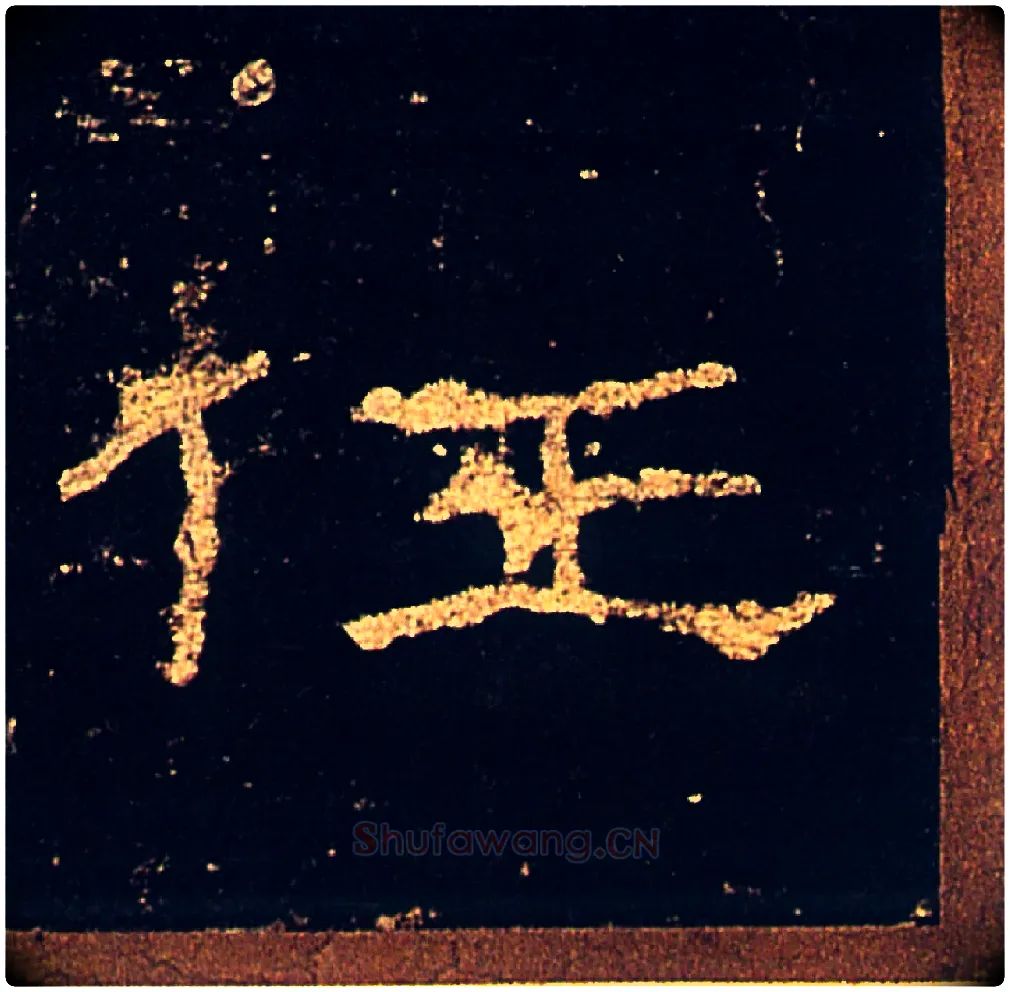 枉
Shufawang.CN